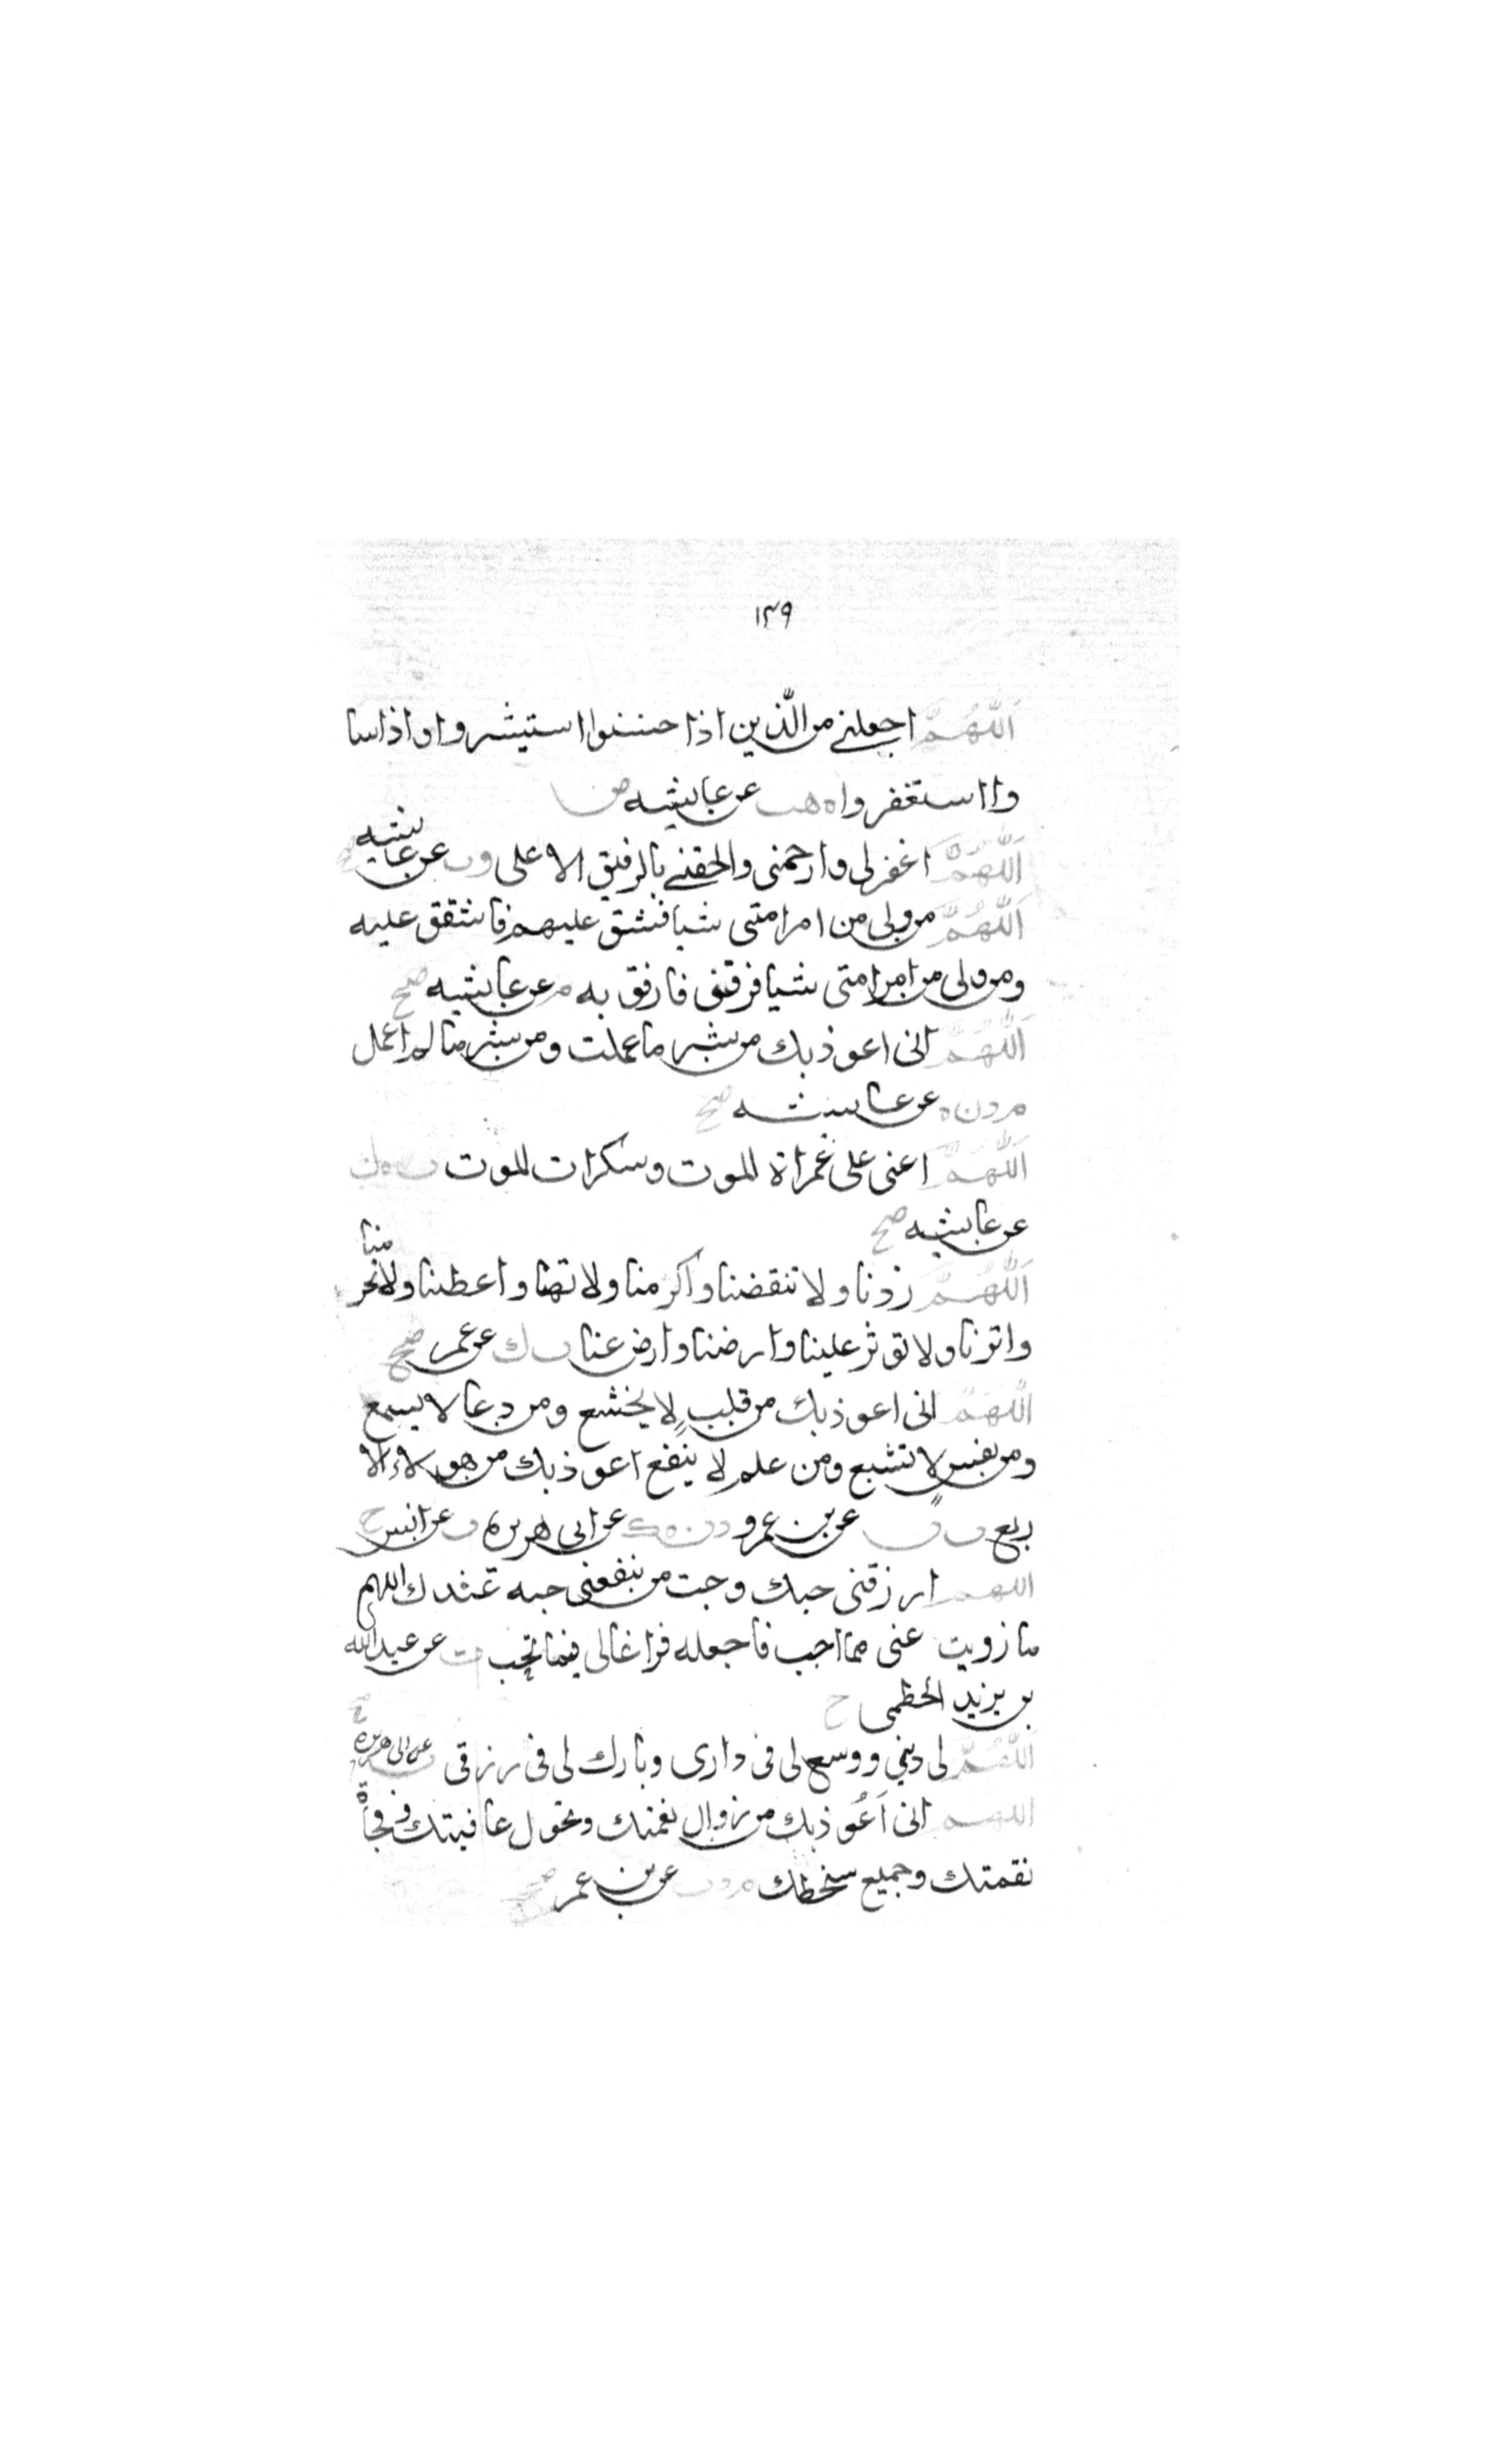 ١٣٩
اللّٰهُمَّ اجعلنى من الّذين اذا حسنوا استبشروا واذا اسا
وا استغفروا ه هب عن عايشه ض
اللّٰهُمَّ اغفرلى وارحمنى والحقنى بالرفيق الاعلى ق ت عن عايشه
اللّٰهُمَّ من ولى من امر امتى شيا فشق عليهم فاشقق عليه
ومن ولى من امر امتى شيا فرقق فارفق به م عن عايشه صح
اللّٰهُمَّ انى اعوذ بك من شر ما عملت ومن شر ما لم اعمل
م د ن ه عن عايشه صح
اللّٰهُمَّ اعنى على غمراة الموت وسكرات الموت ت ه ك
عن عايشه صح
اللّٰهُمَّ زدنا ولا تنقضنا واكرمنا ولا تهنا واعطنا ولا تحر
منا
واثرنا ولا تؤثر علينا وارضنا وارض عنا ت ك عن عمر صح
اللّٰهُمَّ انى اعوذ بك من قلبٍ لا يخشع ومن دعا لا يسمع
ومن نفس لا تشبع ومن علم لا ينفع اعوذ بك من هولاء الا
ربع ت ن عن بن عمرو د ن ه ك عن ابى هريره ن عن انس ح
اللهم ارزقنى حبك وحب من ينفعنى حبه عندك اللهم
ما زويت عنى مما احب فاجعله فراغا لى فيما تحب ت عن عبدالله
بن يزيد الخطمى ح
اللّٰهُمَّ لى ديني ووسع لى فى دارى وبارك لى فى رزقى ت عن ابى هريره
اللهم انى اَعُوذ بك من زوال نعمتك وتحول عافيتك وفجأة
نقمتك وجميع سخطك م د ت عن بن عمر صح